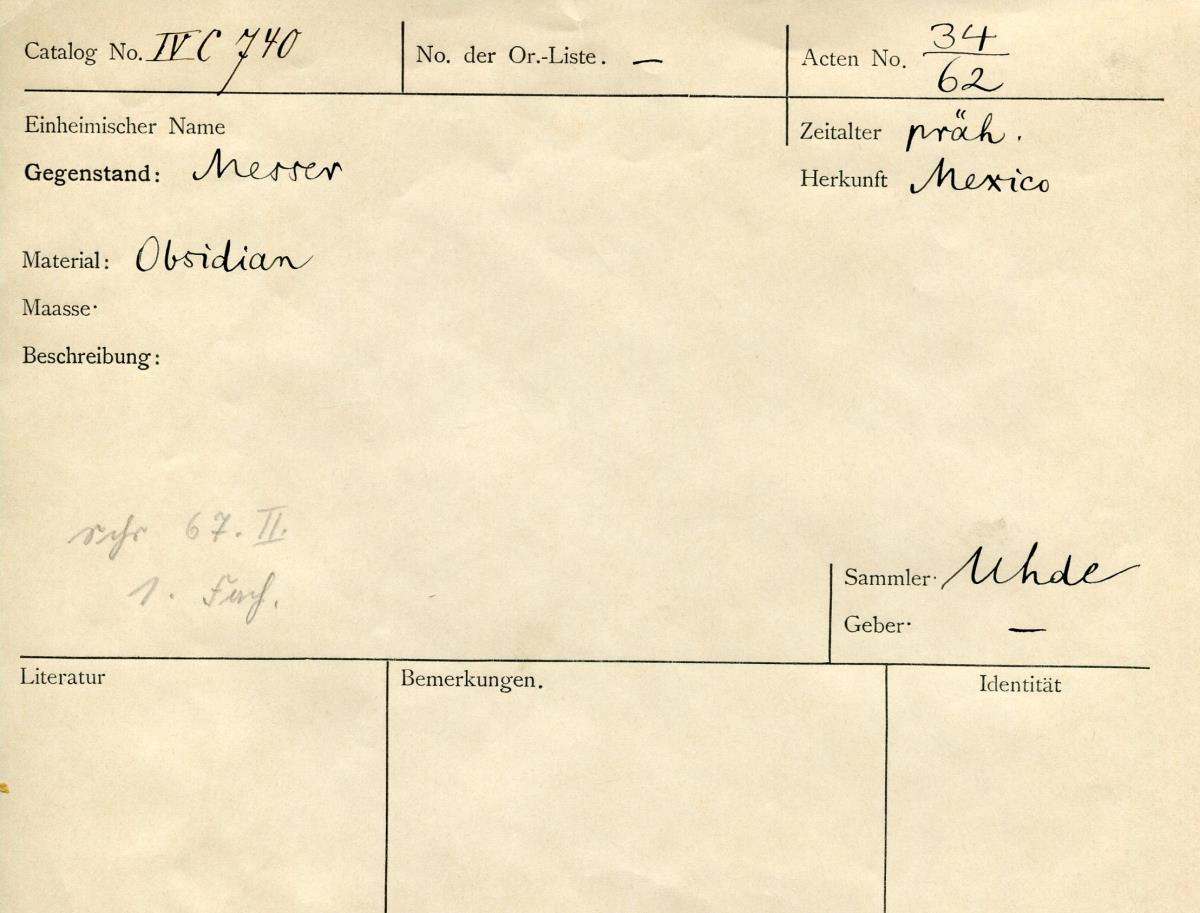 Catalog No. IV C 740
No. der Or.-Liste. —
Acten No. 34/62
Einheimischer Name
Zeitalter präh.
Gegenstand: Messer
Herkunft Mexico
Material: Obsidian
Maasse·
Beschreibung:
schr 67. II.
1. Fach.
Sammler· Uhde
Geber· —
Literatur
Bemerkungen.
Identität